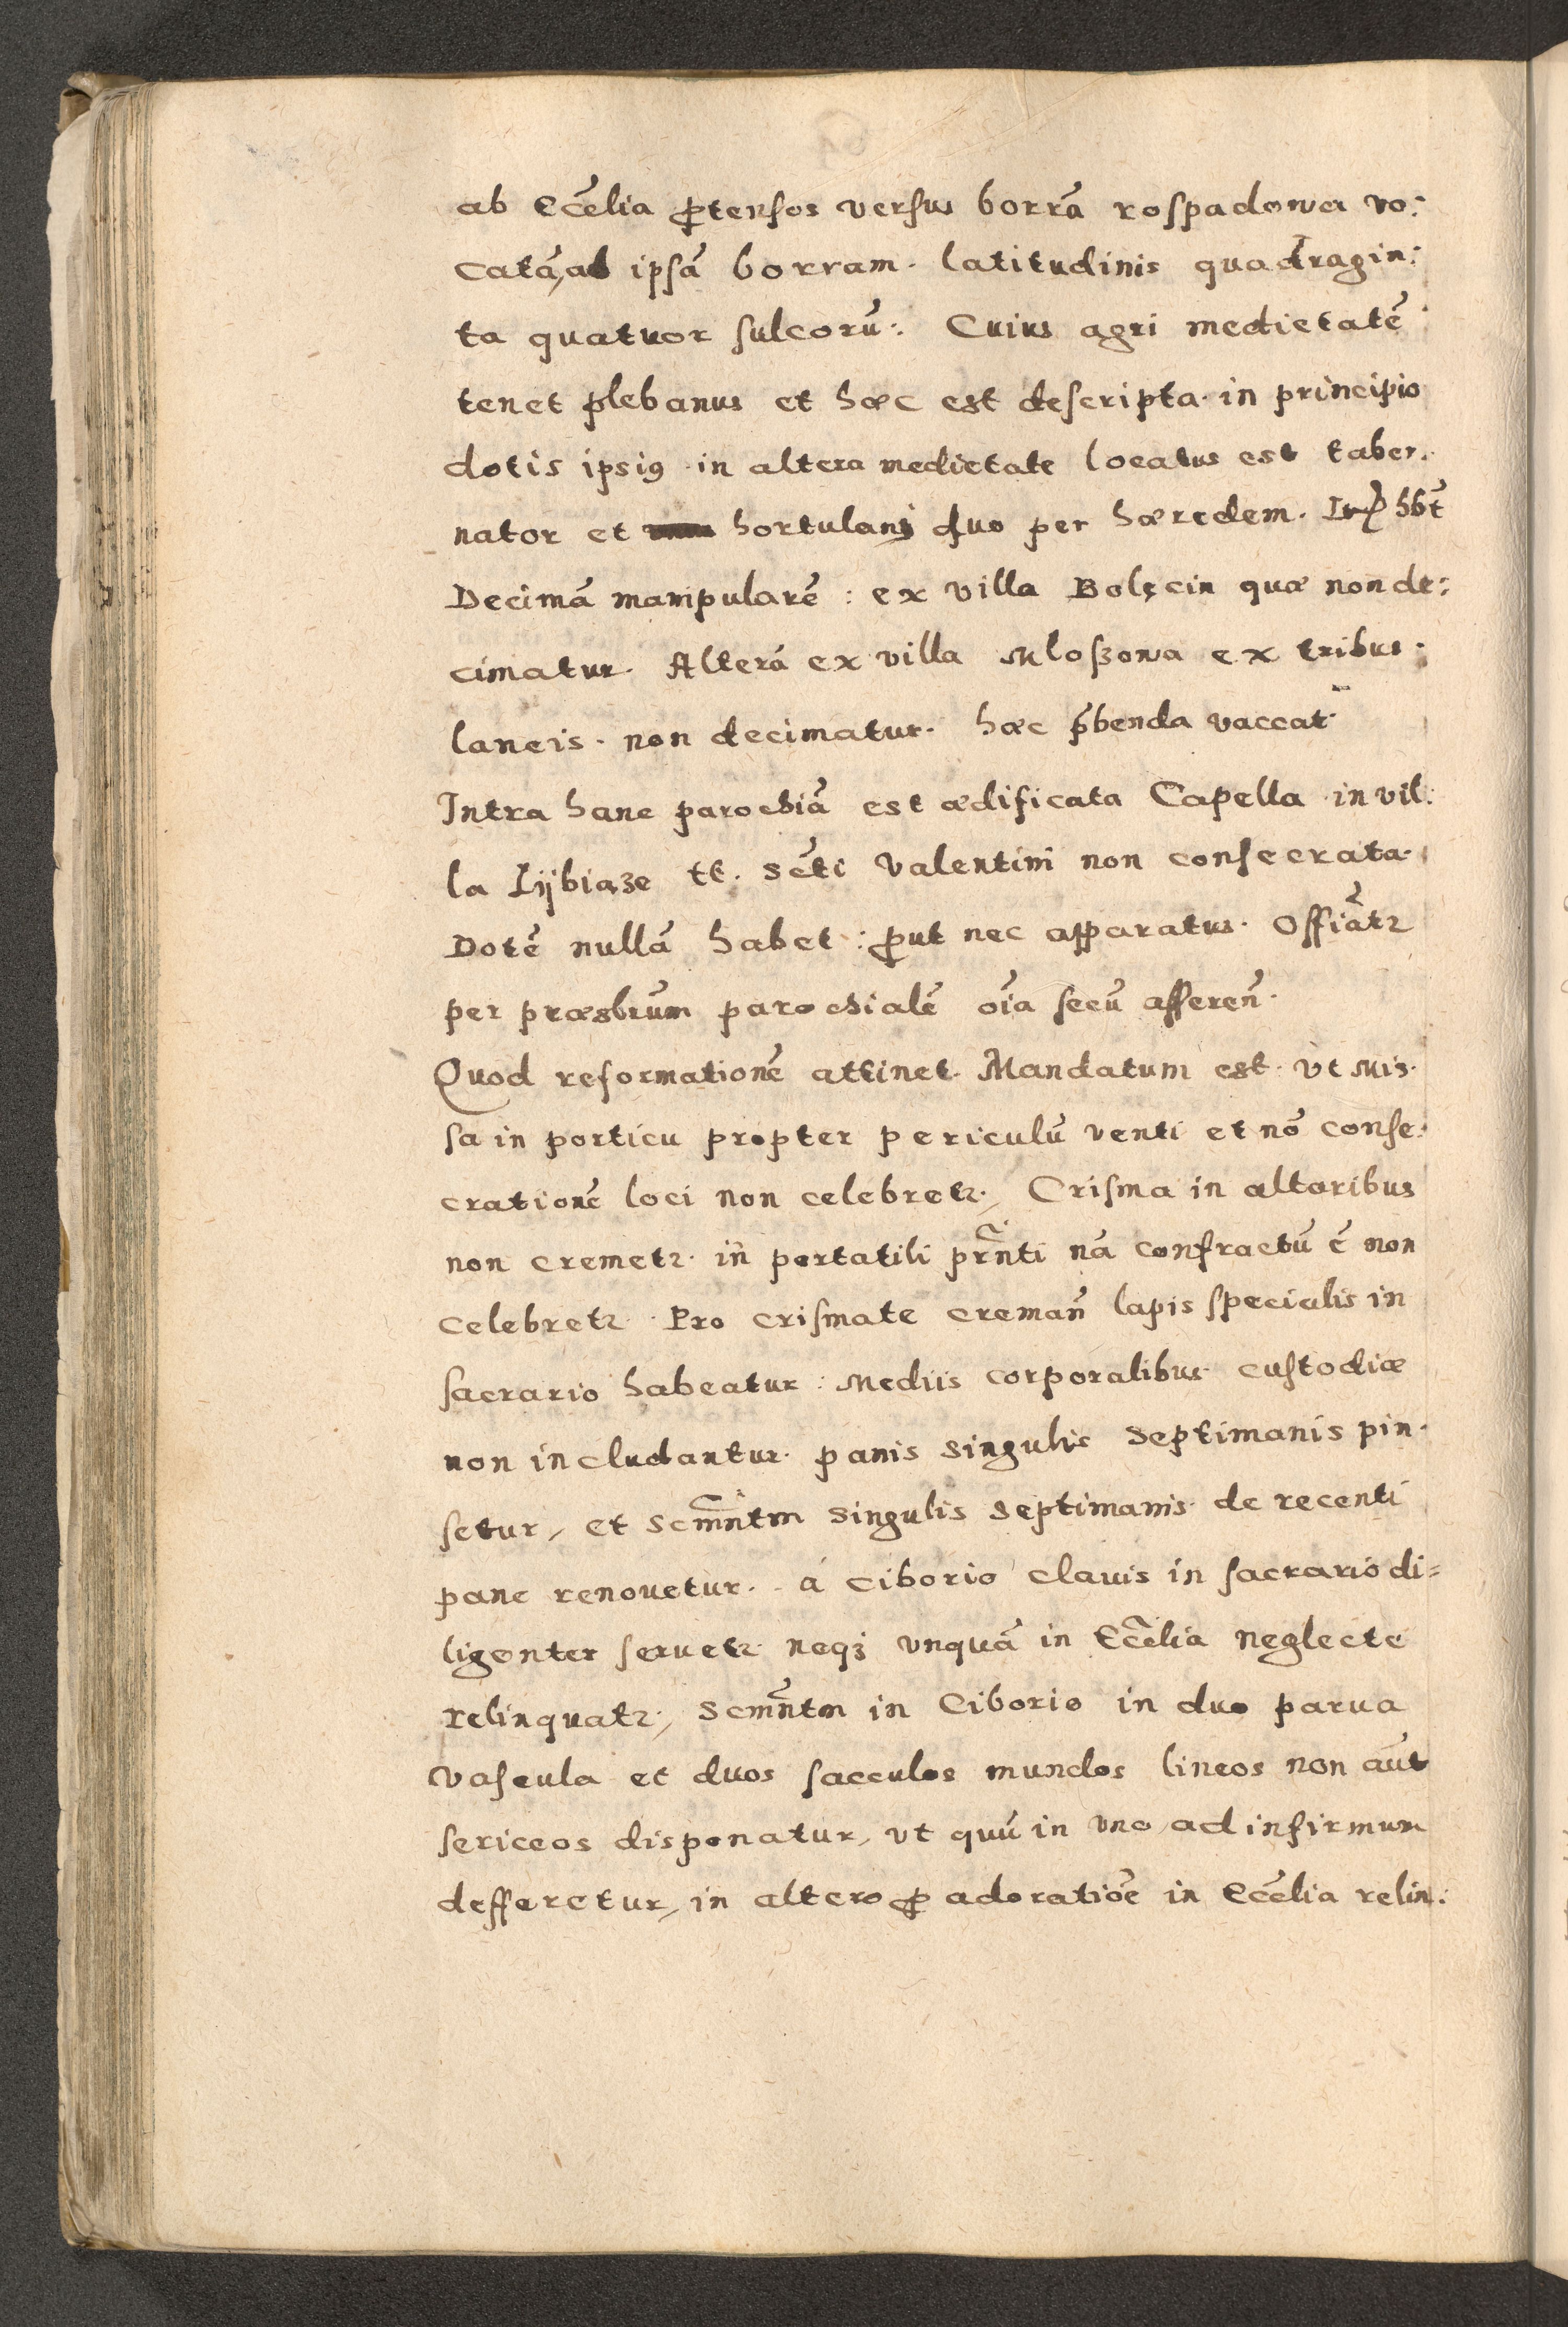 ab Eccēlia ꝓtensos versus borrā rospadowa vo:
catā, ad ipsā borram. latitudinis quadragin:
ta quatuor sulcorū. Cuius agri medietatē
tenet plebanus et hæc est descripta in principio
dotis ipsiꝰ in altera medietate locatus est taber.
nator et hortulani duo per hæredem. hb̄t
Decimā manipularē: ex villa Bolęcin quæ non de:
cimatur. Alterā ex villa Mloszowa ex tribus
laneis. non decimatur. hæc p̄benda vaccat
Intra hanc parochiā est ædificata Capella in vil:
la Lÿbiąze tt. Scti Valentini non consecrata.
Dotē nullā habet: ꝓut nec apparatus. Offiātr
per præsbrūm parochialē oīa secū afferen̄.
Quod reformationē attinet. Mandatum est. ut Mis.
sa in porticu propter periculū venti et nō conse.
crationē loci non celebretr., Crisma in altaribus
non cremetr. in portatili prn̄ti nā confractū ē non
celebretr. Pro crismate creman̄ lapis specialis in
sacrario habeatur: Mediis corporalibus custodiæ
non includantur. panis singulis septimanis pin.
setur, et Scm̄ntm singulis septimanis de recenti
pane renouetur. á Ciborio clauis in sacrario di=
ligenter seruetr. neqꝫ vnquā in Eccēlia neglecte
relinquatr., Scm̄ntm in Ciborio in duo parua
vascula et duos sacculos mundos lineos non aūt
sericeos disponatur, ut quū in vno, ad infirmum
defferetur, in altero ꝓ adoratiōe in Eccēlia relin: